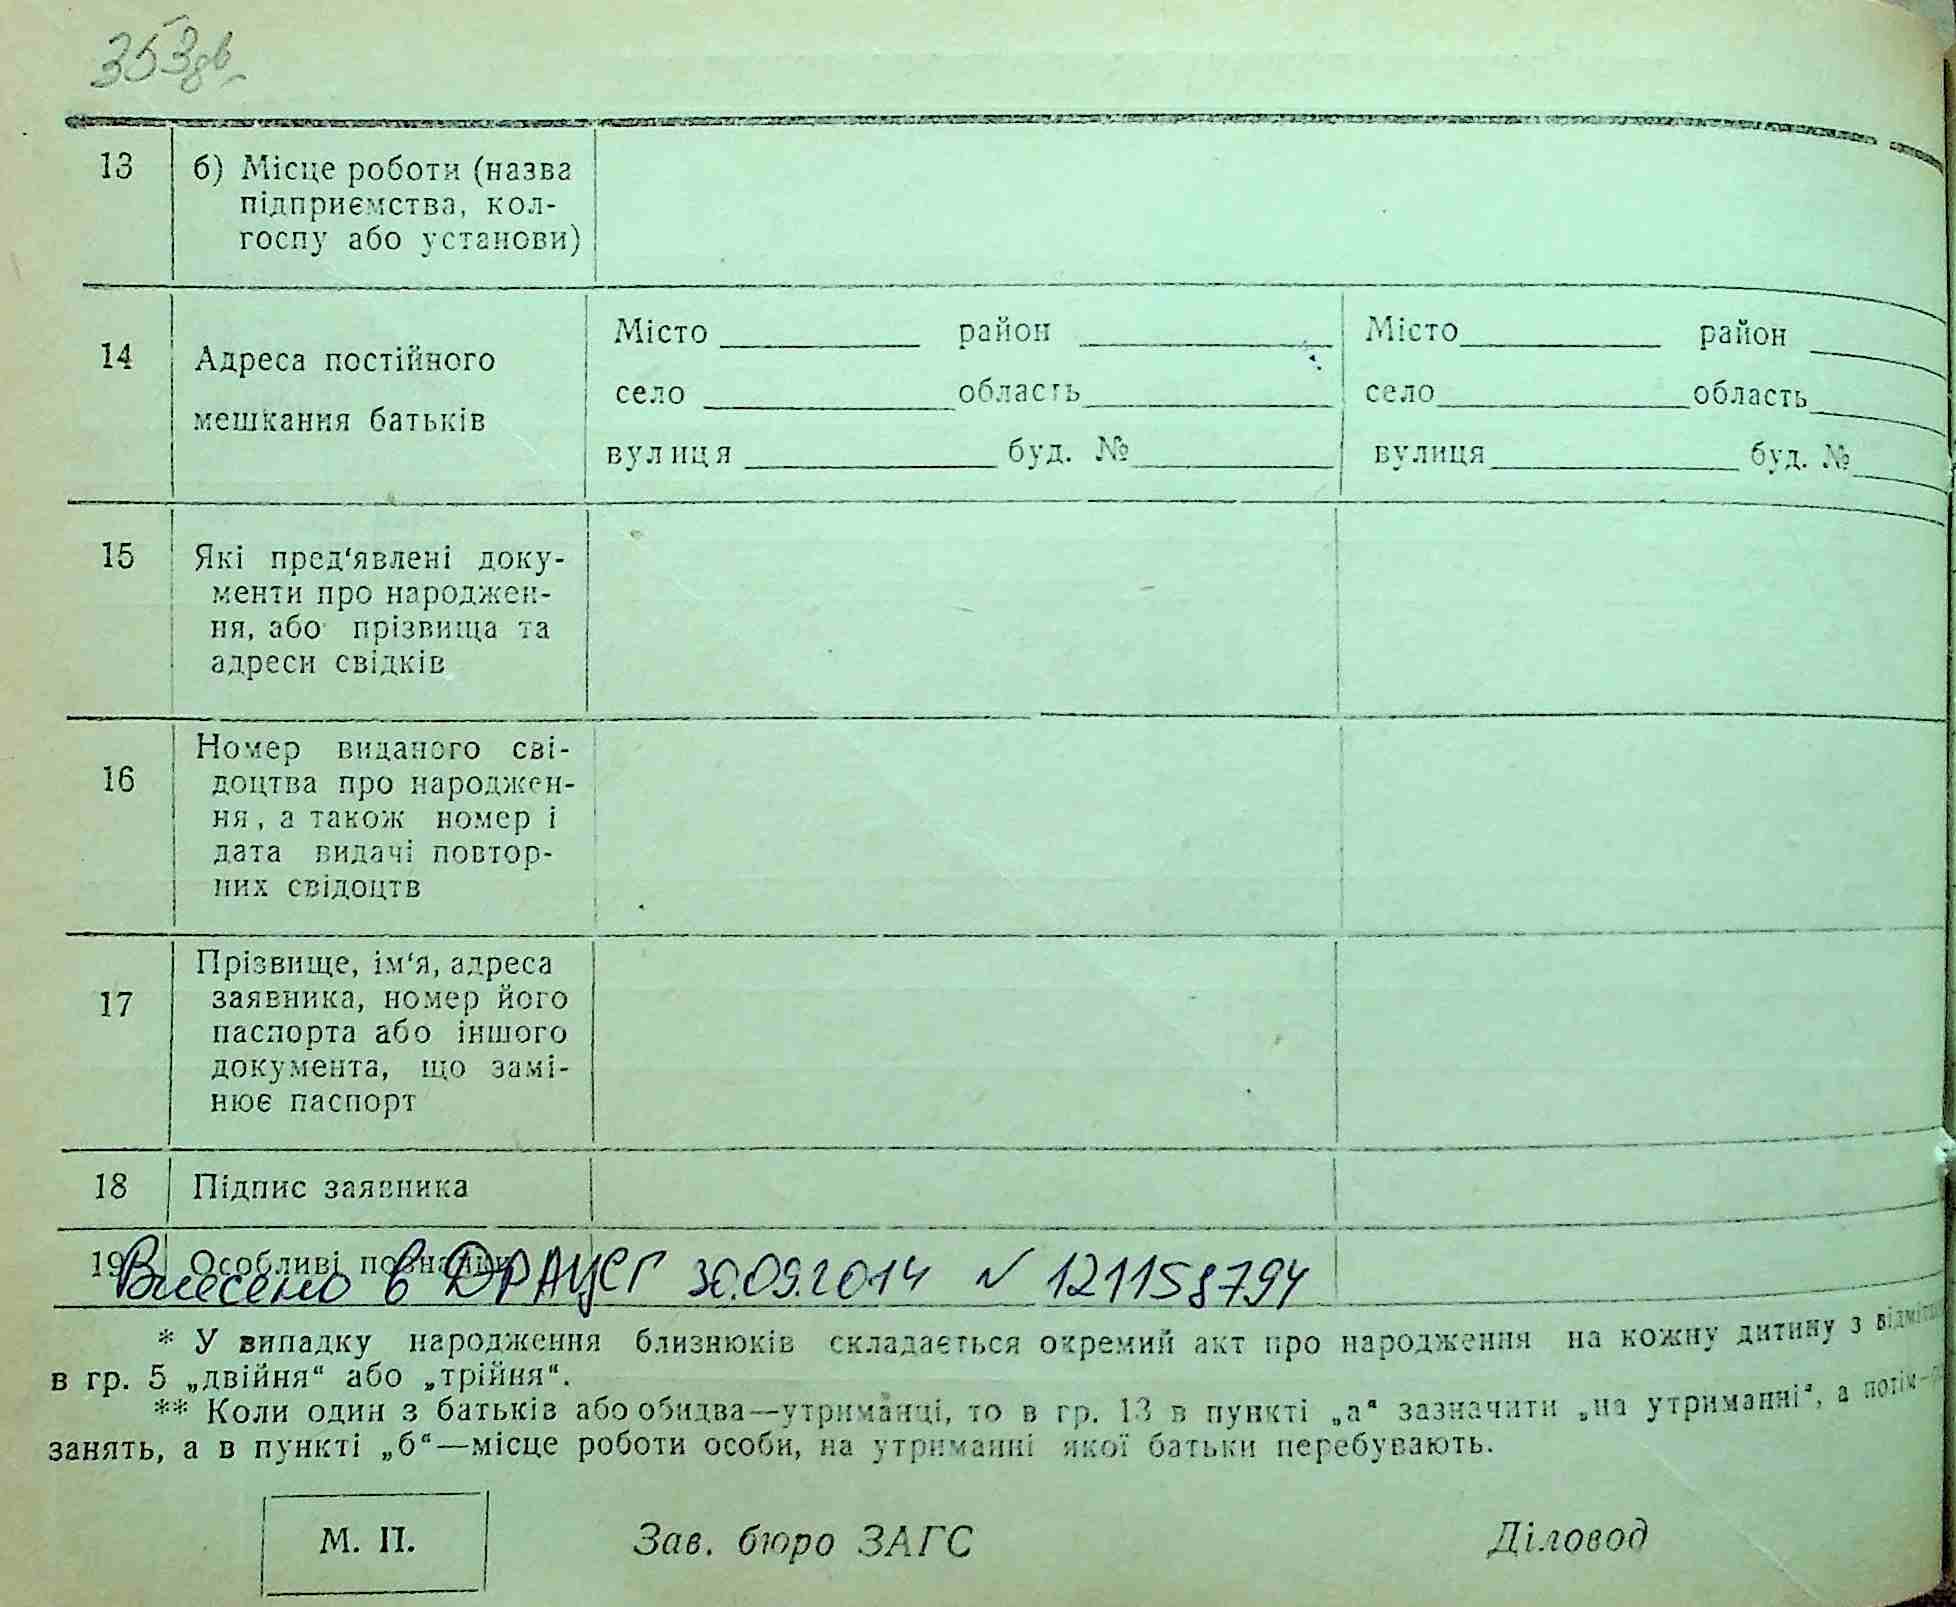 353дв
13 б) Місце роботи (назва
підприємства, кол-
госпу або установи)
14 Адреса постійного
мешкання батьків
Місто район
село область
вулиця буд. №
Місто район
село область
вулиця буд. №
15 Які пред'явлені доку-
менти про народжен-
ня, або прізвища та
адреси свідків
16 Номер виданого сві-
доцтва про народжен-
ня, а також номер і
дата видачі повтор-
них свідоцтв
17 Прізвище, ім'я, адреса
заявника, номер його
паспорта або іншого
документа, що замі-
нює паспорт
18 Підпис заявника
19 Особливі познайки
Внесено в ДРАЦСГ 30.09.2014 № 121158794
* У випадку народження близнюків складається окремий акт про народження на кожну дитину з
в гр. 5 „двійня“ або „трійня“.
** Коли один з батьків або обидва—утриманці, то в гр. 13 в пункті „а“ зазначити „на утриманні“, а потім—
занять, а в пункті „б“—місце роботи особи, на утриманні якої батьки перебувають.
М. П.
Зав. бюро ЗАГС
Діловод